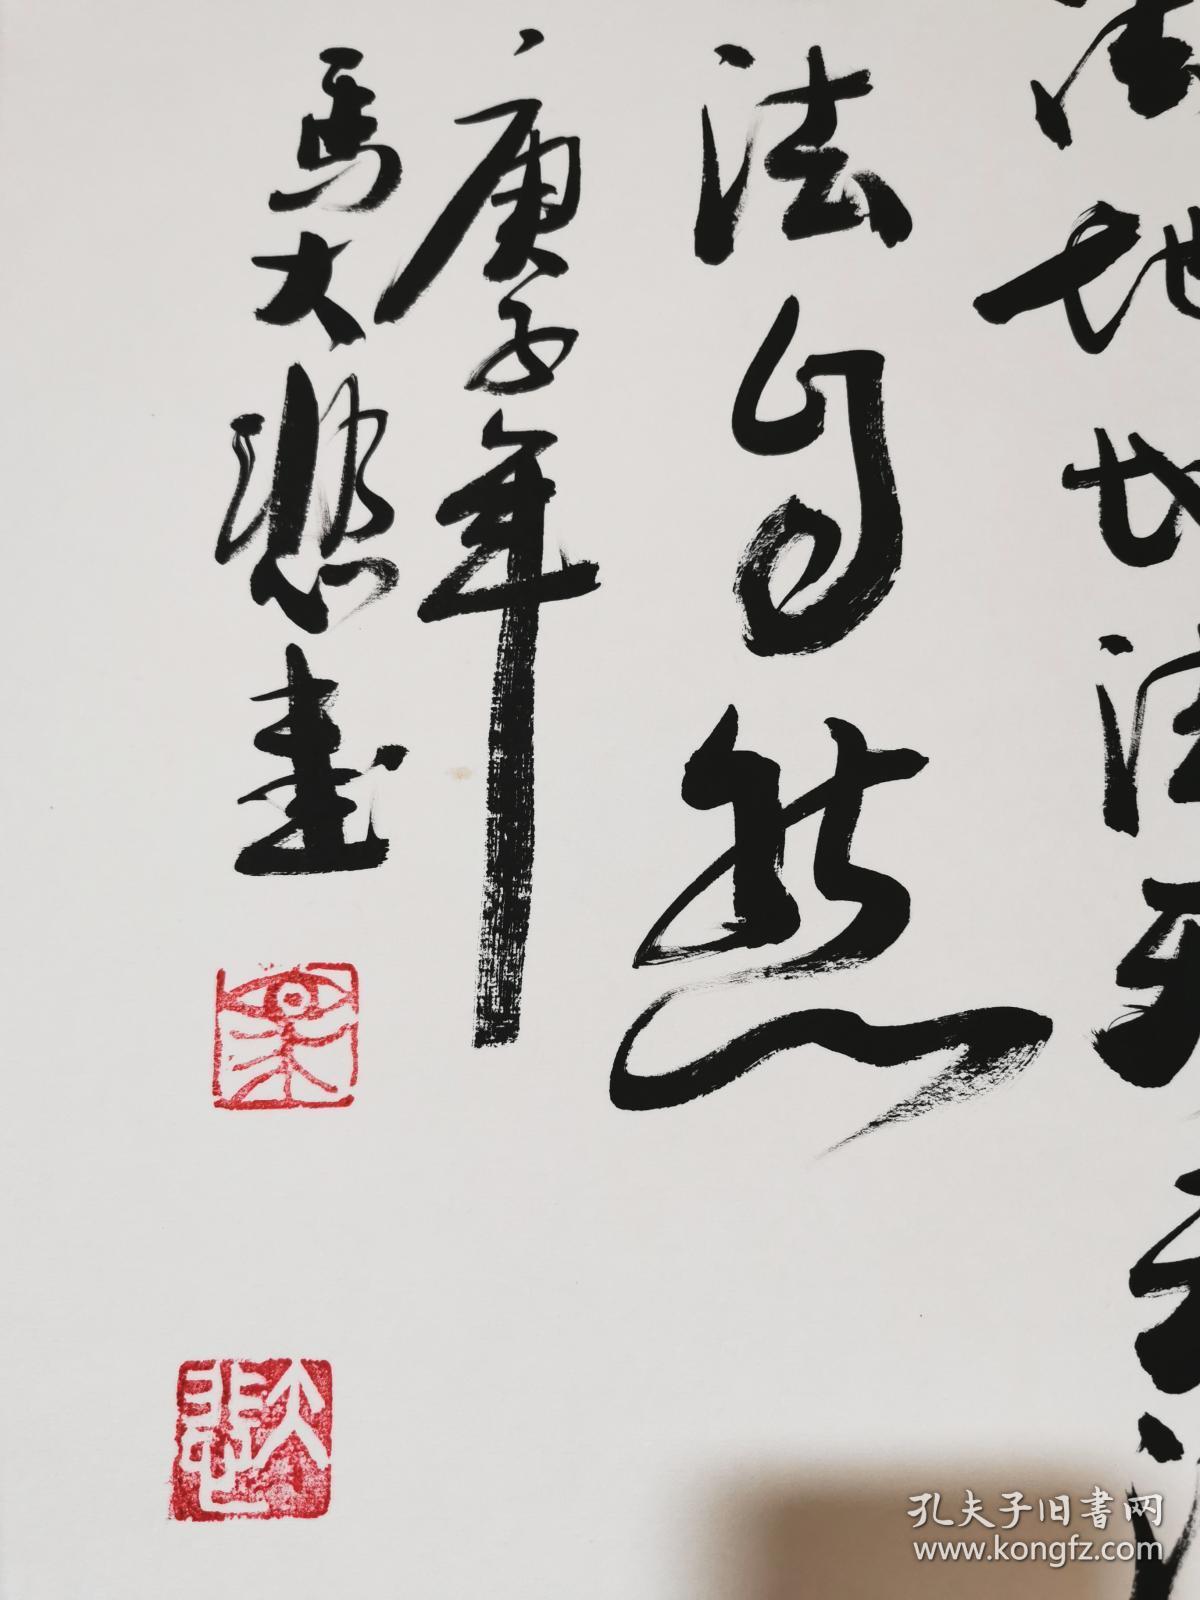 法地地法天天法
法自然
庚子年
马大悲书
大悲
孔夫子旧书网
www.kongfz.com